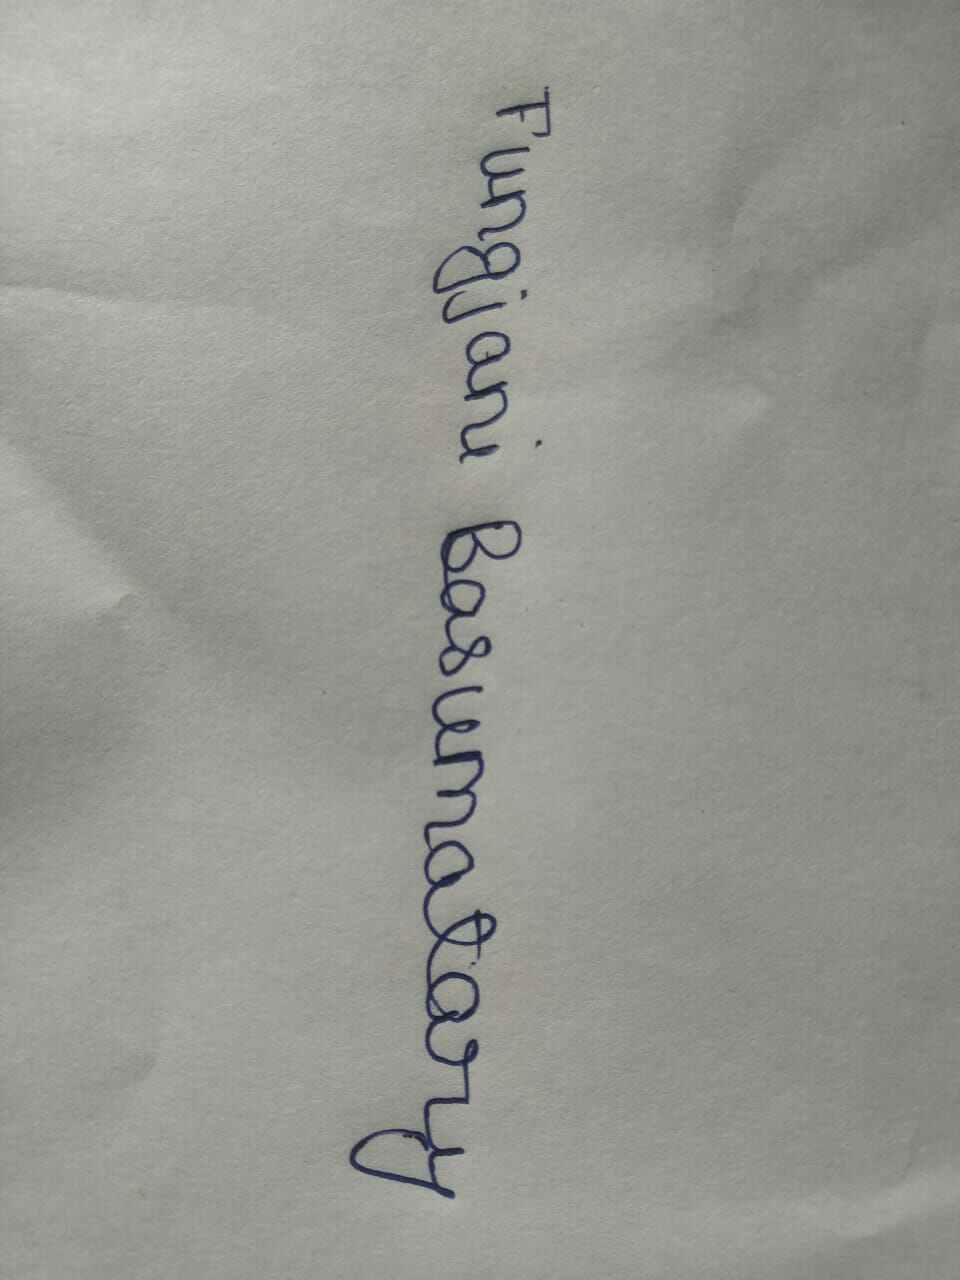 Fungjani Basumatary